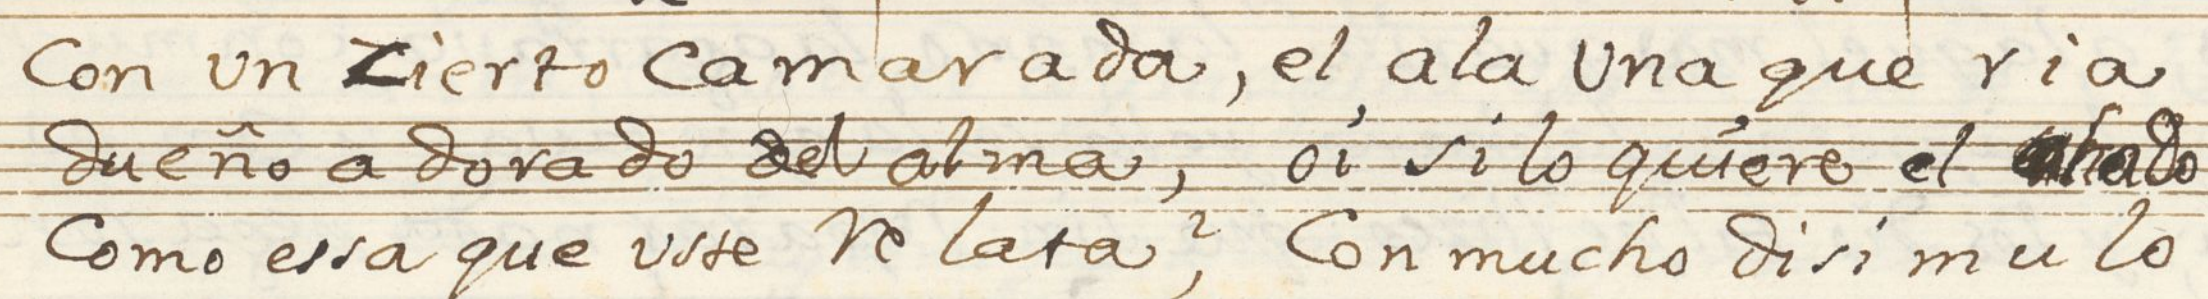 Con un zierto Camarada, el ala una que ria
dueño adorado del alma, oi si lo quiere el hado
Como essa que uste relata? Con mucho disimulo